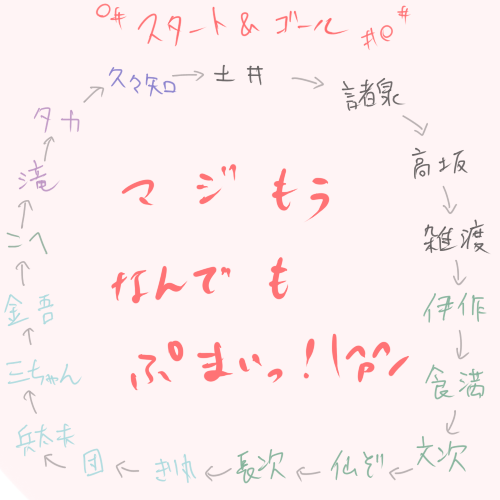 スタート & ゴール
土井
諸泉
高坂
雑渡
伊作
食満
文次
仙ぞ
長次
きり丸
団
兵太夫
三ちゃん
金吾
滝
タカ
久々知
マジもう
なんでも
ぷまいっ!!